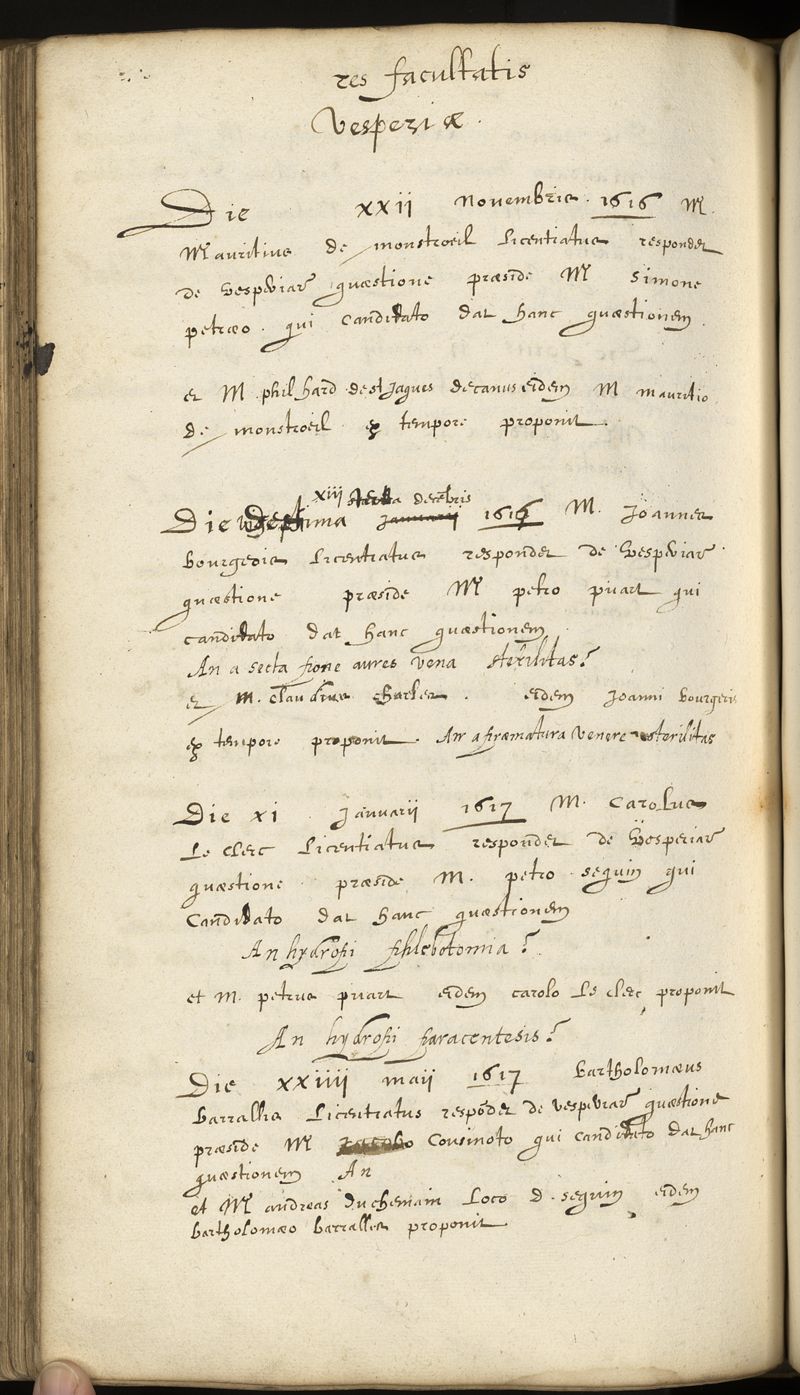 res facultatis
Vesperiæ.
Die xxii Novembris. 1616 M.
Mauritius de monstroeil licentiatus respondet
de vesperiar quæstione præside M Simone
petræo. qui candidato dat hanc quæstionem.
et M. phil hard. de st Jaques decanus eidem M mauritio
de monstroeil ex tempore proponit.
xiii decēbris
Die 1616 M. Joannes
Bourgeois licentiatus respondet de vesperiar
quæstione præside M petro pijart qui
candidato dat hanc quæstionem.
An a secta pone aures vena sterilitas?
et M. Claudius Charles. eidem Joanni Bourgeois
ex tempore proponit. An a præmatura venere sterilitas
Die xi Januarii 1617 M. Carolus
Le clerc Licentiatus respondet de vesperiar
quæstione præside M. petro seguin qui
Candidato dat hanc quæstionem
An hydropi phlebotomia?
et M. petrus pijart eidem carolo Le clerc proponit
An hydropi paracentesis?
Die xxiiii maii 1617 Bartholomæus
Barralis Licentiatus respōdet de vesperiar quæstione
præside M Cousinoto qui candidato dat hanc
quæstionem An
et M andreas duchemain Loco d. seguin eidem
bartholomæo barralis proponit